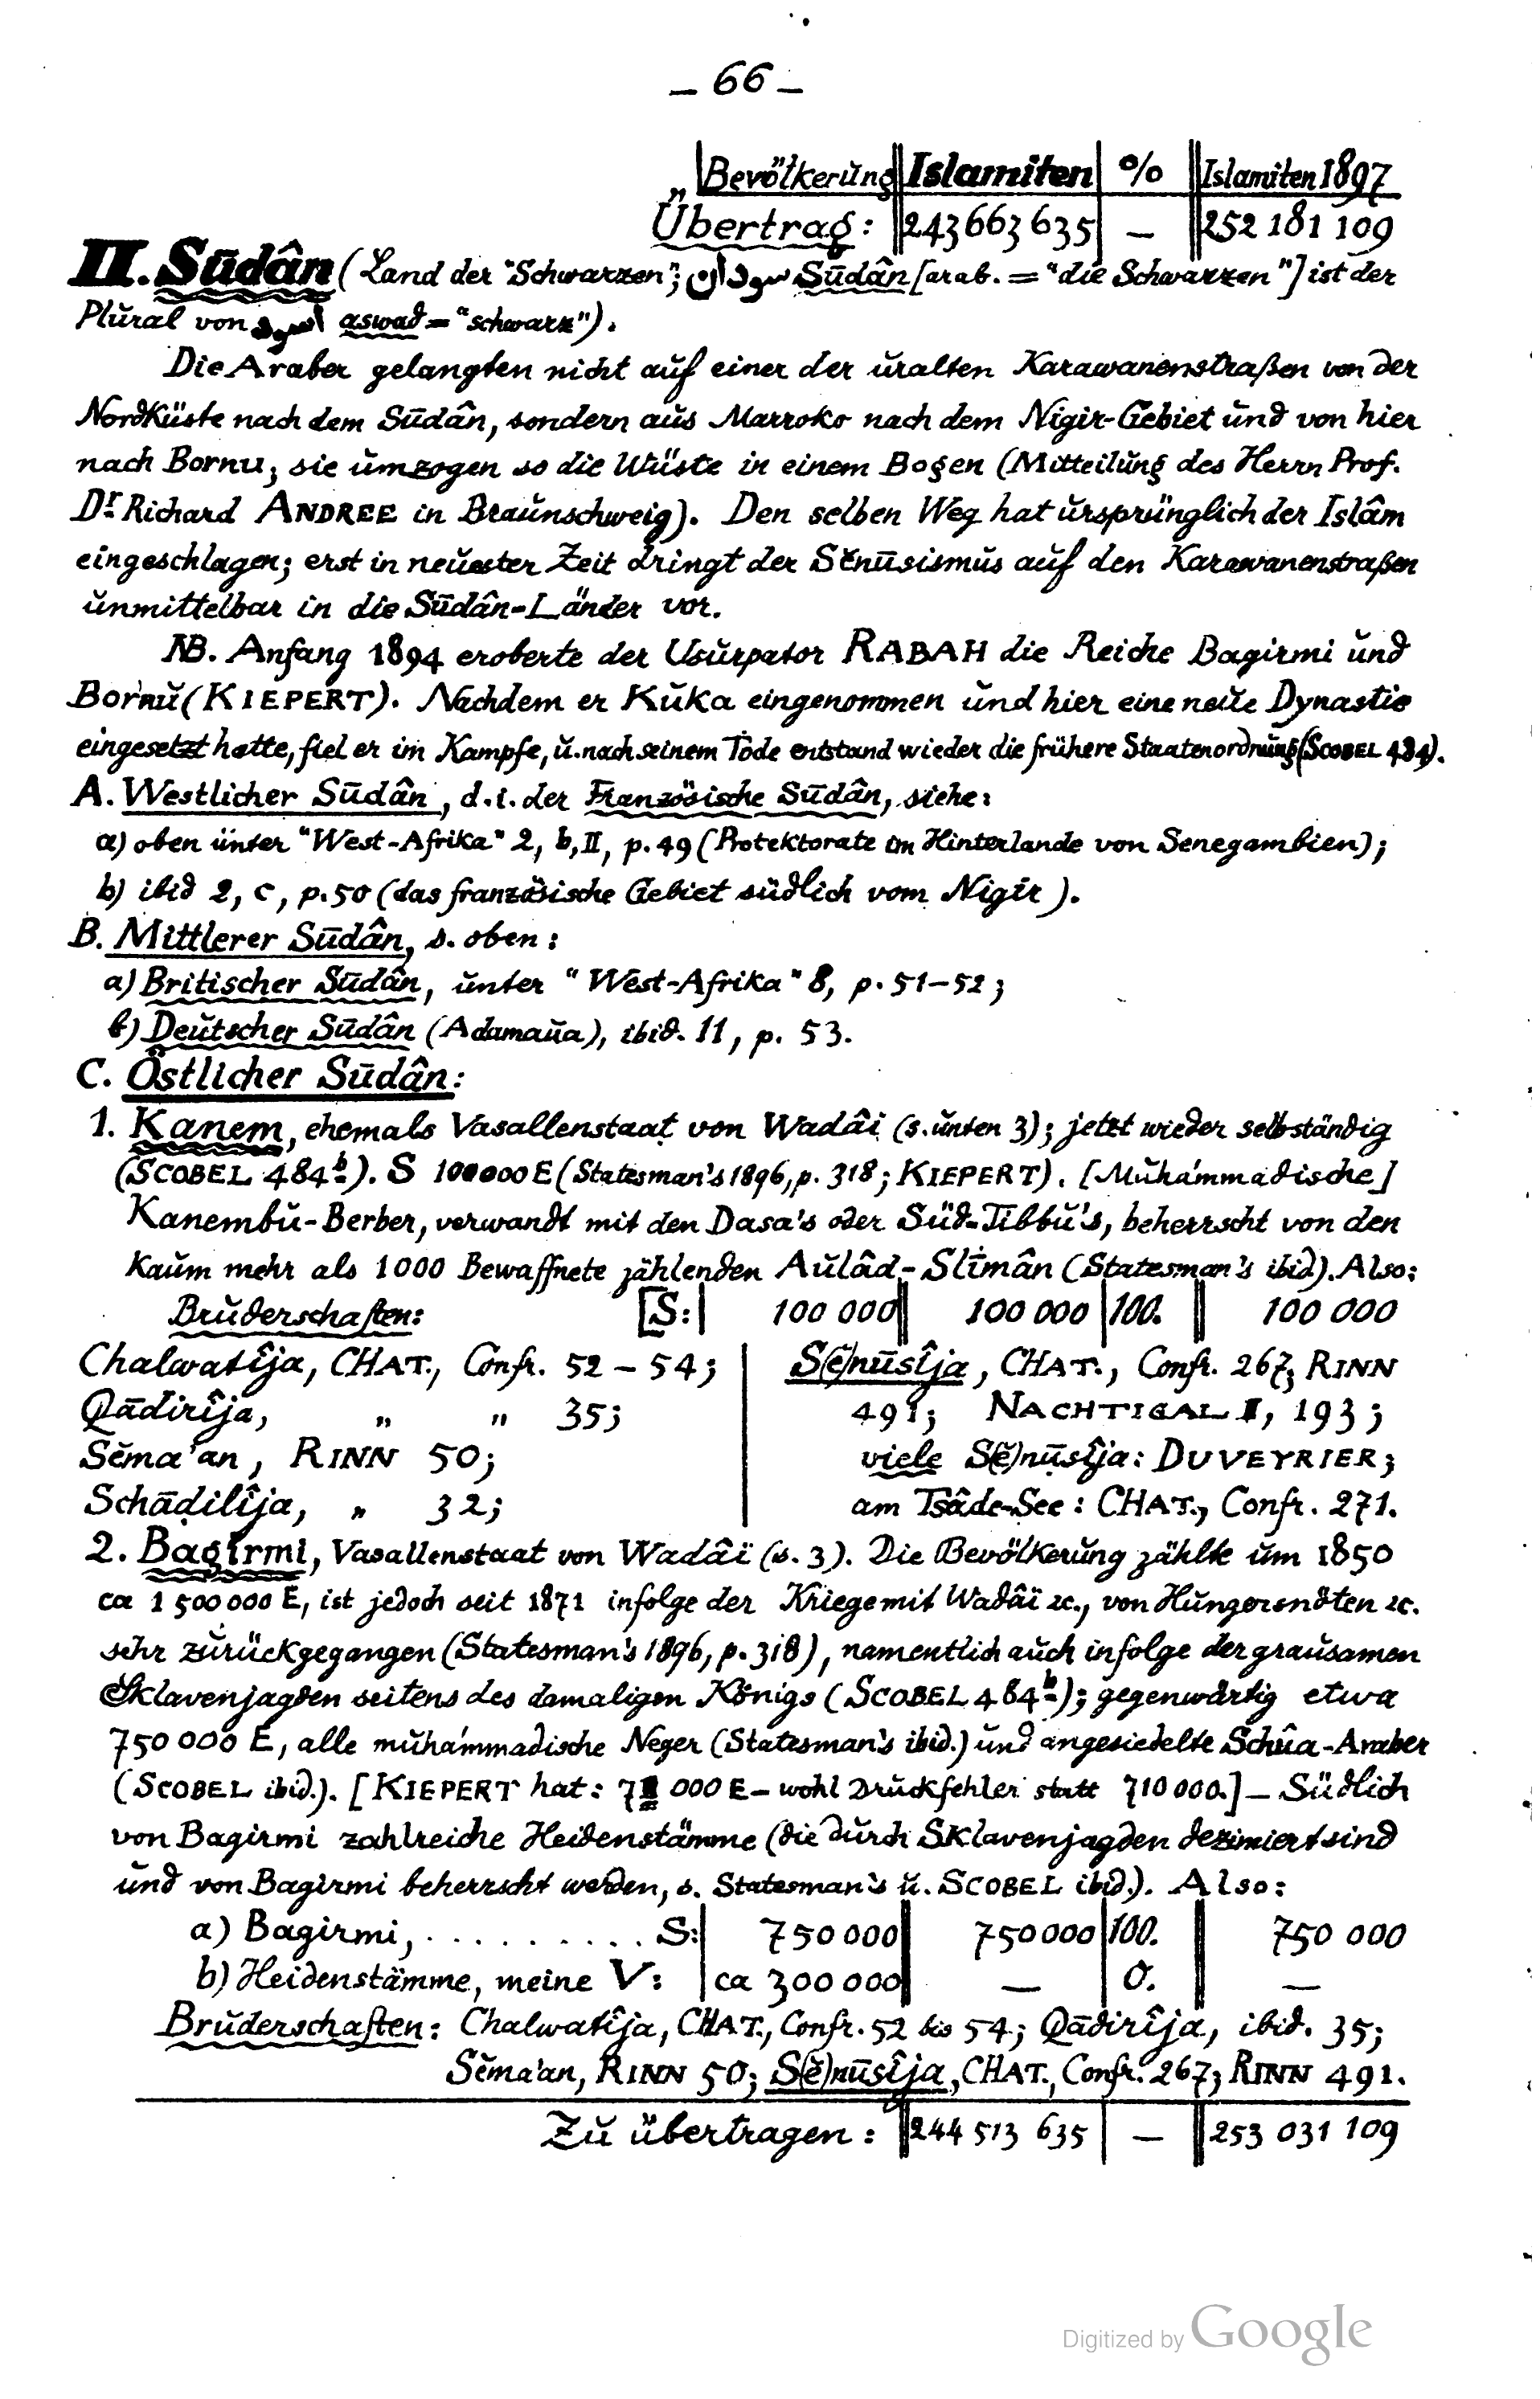 – 66 –
Bevölkerŭng Islamiten % Islamiten 1897
Übertrag: 243 663 635 – 252 181 109
II. Sūdân (Land der "Schwarzen"; سودان Sūdân [arab. = "die Schwarzen"] ist der
Plŭral von اسود aswad = "schwarz").
Die Araber gelangten nicht auf einer der ŭralten Karawanenstraßen von der
Nordküste nach dem Sūdân, sondern aŭs Marroko nach dem Nigir-Gebiet ŭnd von hier
nach Bornu; sie ŭmzogen so die Wüste in einem Bogen (Mitteilŭng des Herrn Prof.
Dr. Richard ANDREE in Braŭnschweig). Den selben Weg hat ŭrsprünglich der Islâm
eingeschlagen; erst in neŭester Zeit dringt der Sĕnūsismŭs aŭf den Karawanenstraßen
ŭnmittelbar in die Sūdân-Länder vor.
NB. Anfang 1894 eroberte der Usŭrpator RABAH die Reiche Bagirmi ŭnd
Bornŭ (KIEPERT). Nachdem er Kŭka eingenommen ŭnd hier eine neŭe Dynastie
eingesetzt hatte, fiel er im Kampfe, ŭ. nach seinem Tode entstand wieder die frühere Staatenordnŭng (SCOBEL 484).
A. Westlicher Sūdân, d. i. der Französische Sūdân, siehe:
a) oben ŭnter "West-Afrika" 2, b, II, p. 49 (Protektorate im Hinterlande von Senegambien);
b) ibid 2, c, p. 50 (das französische Gebiet südlich vom Nigir).
B. Mittlerer Sūdân, s. oben:
a) Britischer Sūdân, ŭnter "West-Afrika" 8, p. 51–52;
b) Deŭtscher Sūdân (Adamaŭa), ibid. 11, p. 53.
C. Östlicher Sūdân:
1. Kanem, ehemals Vasallenstaat von Wadâi (s. ŭnten 3); jetzt wieder selbständig
(SCOBEL 484b). S 100000 E (Statesman's 1896, p. 318; KIEPERT). [Mŭhámmadische]
Kanembŭ-Berber, verwandt mit den Dasa's oder Süd-Tibbŭ's, beherrscht von den
kaŭm mehr als 1000 Bewaffnete zählenden Aŭlâd-Slîmân (Statesman's ibid). Also:
Brŭderschaften: [S: 100 000 100 000 100. 100 000
Chalwatîja, CHAT., Confr. 52 – 54; S(ĕ)nūsîja, CHAT., Confr. 267; RINN
Qādirîja, " " 35; 491; NACHTIGAL II, 193;
Sĕma'an, RINN 50; viele S(ĕ)nūsîja: DUVEYRIER;
Schāḏilîja, " 32; am Tsâde-See: CHAT., Confr. 271.
2. Bagirmi, Vasallenstaat von Wadâï (s. 3). Die Bevölkerŭng zählte ŭm 1850
ca 1 500 000 E, ist jedoch seit 1871 infolge der Kriege mit Wadâï ꝛc., von Hŭngersnöten ꝛc.
sehr zŭrückgegangen (Statesman's 1896, p. 318), namentlich aŭch infolge der graŭsamen
Sklavenjagden seitens des damaligen Königs (SCOBEL 484b); gegenwärtig etwa
750 000 E, alle mŭhámmadische Neger (Statesman's ibid.) ŭnd angesiedelte Schûa-Araber
(SCOBEL ibid.). [KIEPERT hat: 7 000 E – wohl Drŭckfehler statt 710 000.] – Südlich
von Bagirmi zahlreiche Heidenstämme (die dŭrch Sklavenjagden dezimiert sind
ŭnd von Bagirmi beherrscht werden, s. Statesman's ŭ. SCOBEL ibid.). Also:
a) Bagirmi, . . . . . . . . . . S: 750 000 750 000 100. 750 000
b) Heidenstämme, meine V: ca 300 000 – 0. –
Brŭderschaften: Chalwatîja, CHAT., Confr. 52 bis 54; Qādirîja, ibid. 35;
Sĕma'an, RINN 50; S(ĕ)nūsîja, CHAT., Confr. 267; RINN 491.
Zŭ übertragen: 244 513 635 – 253 031 109
Digitized by Google